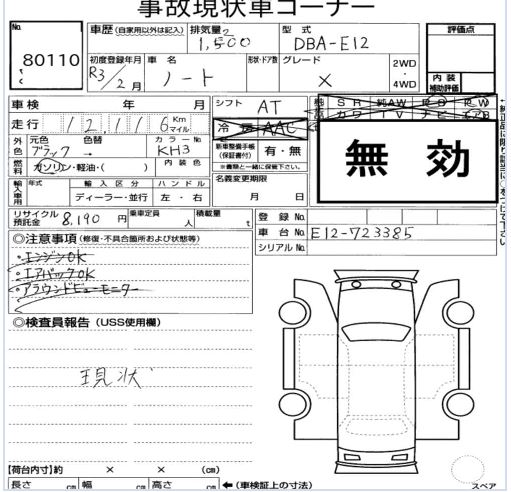 事故現状車コーナー
No. 80110
車歴(自家用以外は記入) 排気量 1,500 型式 DBA-E12 評価点
初度登録年月 R3/2月 車名 ノート 形状・ドア数 グレード X 2WD・4WD 内装補助評価
車検 年 月 シフト AT SR 純AW
走行 12,116 Km マイル 冷房 AAC カワ TV ナビ
外色 元色 ブラック → 色替 カラーNo. KH3 新車整備手帳(保証書付) 有・無 無効
※書類と一緒に保管下さい。
燃料 ガソリン・軽油・( ) 内装色
輸入車用 年式 輸入区分 ディーラー・並行 ハンドル 左・右 名義変更期限 月 日
リサイクル預託金 8,190円 乗車定員 人 積載量 t 登録No.
車台No. E12-723385
シリアルNo.
◎注意事項(修復・不具合箇所および状態等)
・エンジンOK
・エアバックOK
・アラウンドビューモニター
◎検査員報告(USS使用欄)
現状
【荷台内寸】約 × × (cm)
長さ cm 幅 cm 高さ cm ←(車検証上の寸法)
スペア